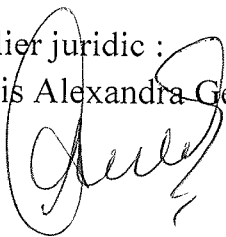 lier juridic :
is Alexandra Ge